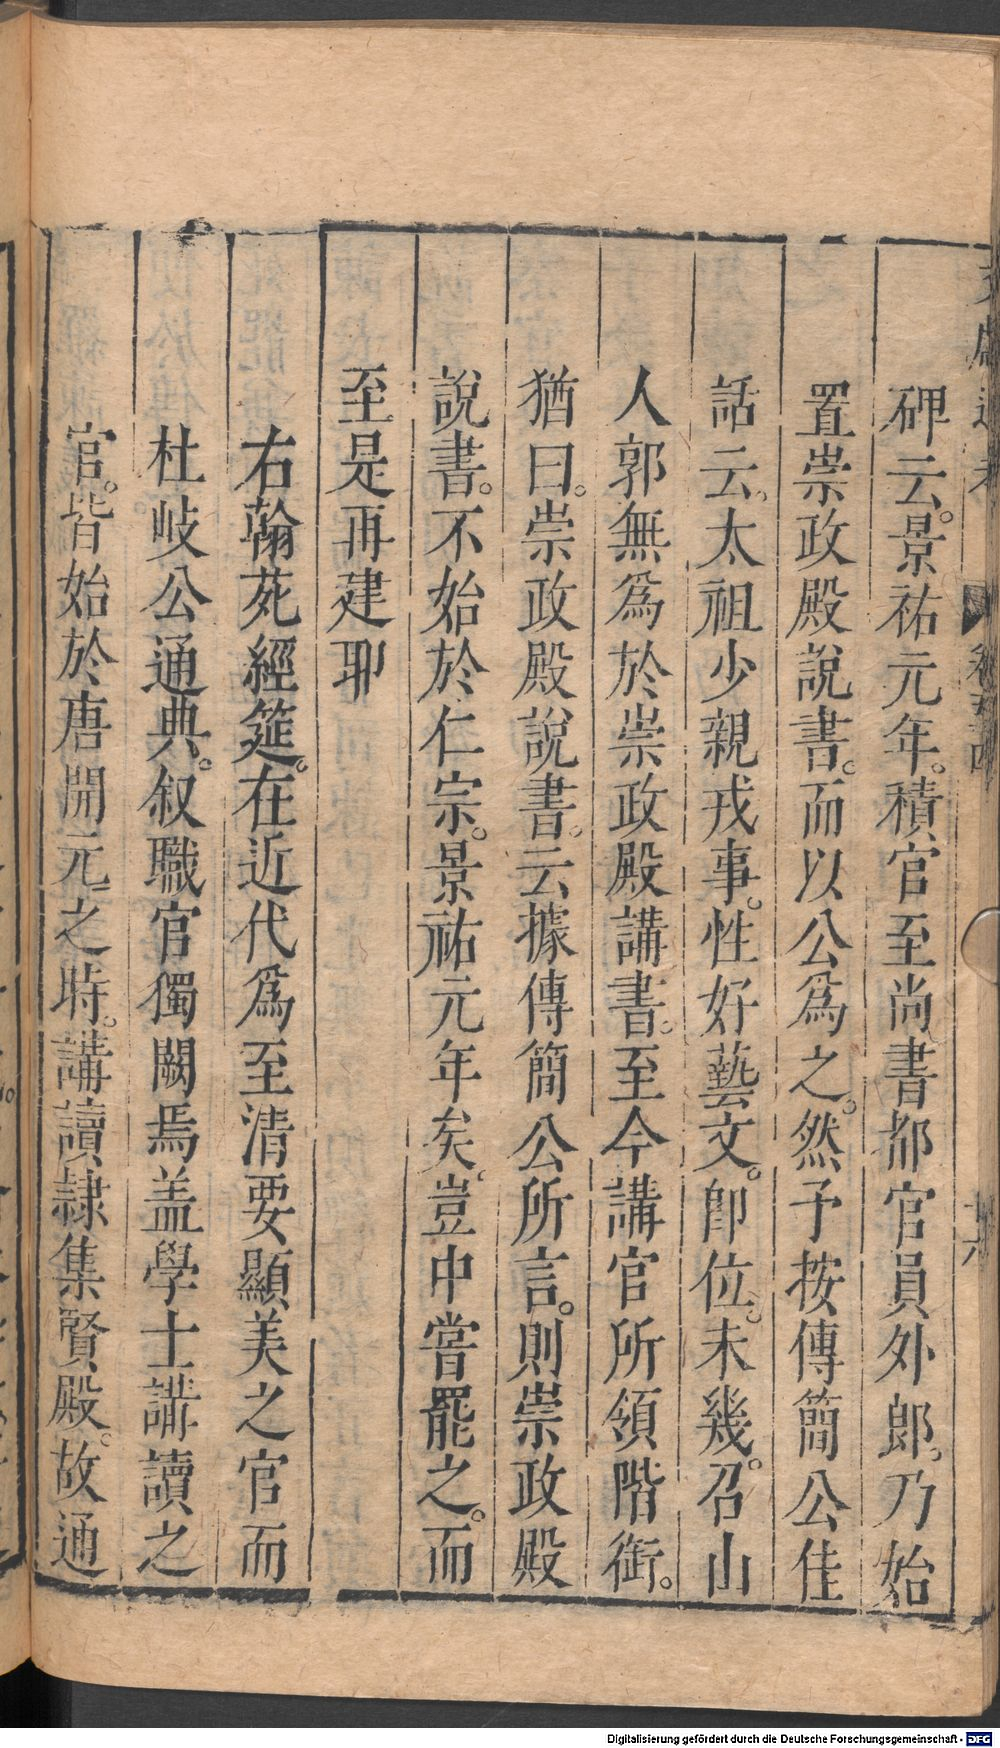 碑云。景祐元年。積官至尚書都官員外郎。乃始
置崇政殿說書。而以公爲之。然予按傳簡公佳
話云。太祖少親戎事。性好藝文。即位。未幾。召山
人郭無爲於崇政殿講書。至今講官所領階銜。
猶曰。崇政殿說書。云據傳簡公所言。則崇政殿
說書。不始於仁宗。景祐元年矣。豈中嘗罷之。而
至是再建耶
右翰苑經筵。在近代爲至清要顯美之官而
杜岐公通典。叙職官獨闕焉盖學士講讀之
官。皆始於唐開元之時。講讀隷集賢殿。故通
Digitalisierung gefördert durch die Deutsche Forschungsgemeinschaft - DFG